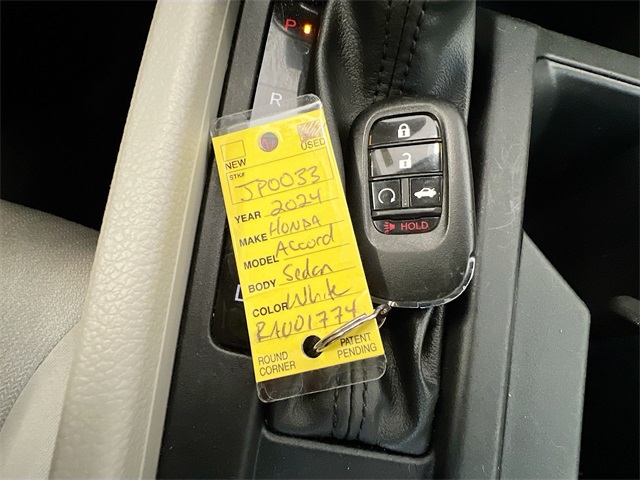 P
R
NEW USED
STK# JP0033
YEAR 2024
MAKE HONDA
MODEL Accord
BODY Sedan
COLOR White
RA001774
ROUND CORNER
PATENT PENDING
HOLD